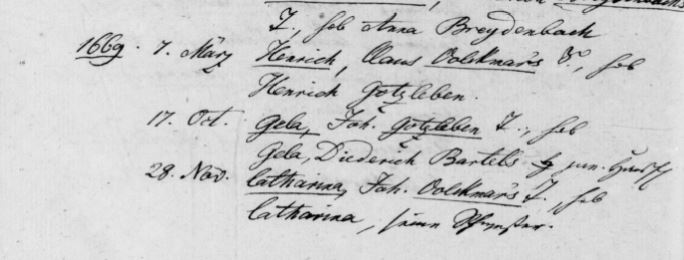 T., heb Anna Breydenbach
1669. 7. März Henrich, Claus Volckmar's S., heb
Henrich Gotzleben.
17. Oct. Gela, Joh. Gotzleben T., heb
Gela, Diederich Bartels jun.
28. Nov. Catharina, Joh. Volckmar's T., heb
Catharina, seine Schwester.